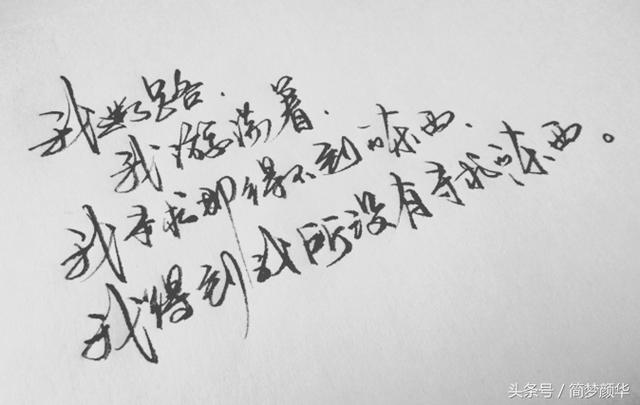 我迷了路.
我游荡着.
我寻求那得不到的东西.
我得到我所没有寻求的东西。
头条号 / 简梦颜华